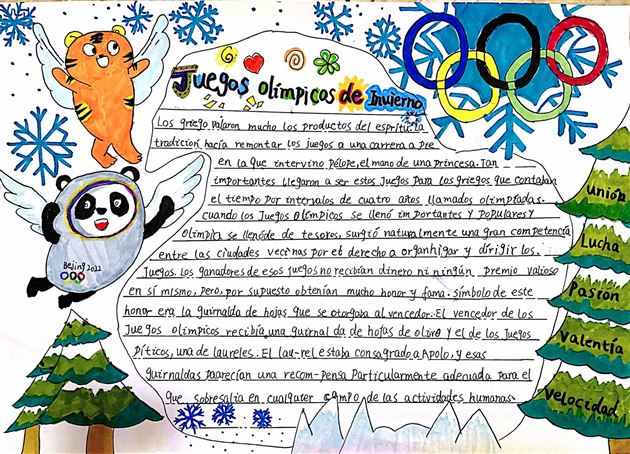 Juegos olímpicos de Invierno
Los griego valaron mucho los productos del espíritic. la
tradicion hacía remontar los juegos a una carrera a pie
en la que intervino pélope, el mano de una princesa. Tan
importantes llegaron a ser estos Juegos Para los griegos que contaban
el tiempo por intervalos de cuatro años llamados olimpiadas.
cuando los Juegos olímpicos se llenó importantes y populares y
olimpica se llenóde de tesoros, surgió naturalmente una gran competencia
entre las ciudades vecinas por et derecho a organhigar y dirigir los.
Juegos. los ganadores de esos juegos no recibían dinero ni ningún, premio valioso
en sí mismo, pero, por supuesto obtenían mucho honor y fama. símbolo de este
honor era la guirnalda de hojas que se otorgaba al vencedor. El vencedor de los
Juegos olímpicos recibía, una guirnal da de hojas de olivo y el de los Juegos
píticos, una de laureles. El lau-rel estaba consagrado a Apolo, y esas
guirnaldas paarecían una recom-pensa particularmente adecuada para el
que sobresalía en cualquier campo de las actividades humanas.
Beijing 2022
unión
Lucha
Pasion
valentía
velocidad